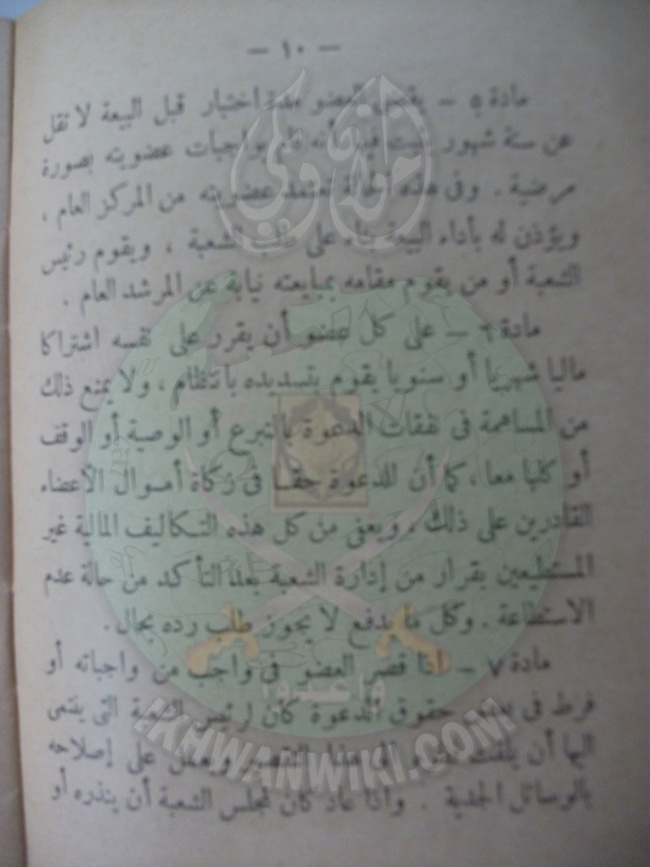 — ١٠ —
مادة ٥ — يقضى العضو مدة اختبار قبل البيعة لا تقل
عن ستة شهور يثبت فيها أنه قام بواجبات عضويته بصورة
مرضية . وفى هذه الحالة تعتمد عضويته من المركز العام ،
ويؤذن له بأداء البيعة بناء على طلب الشعبة ، ويقوم رئيس
الشعبة أو من يقوم مقامه بمبايعته نيابة عن المرشد العام .
مادة ٦ — على كل عضو أن يقرر على نفسه اشتراكا
ماليا شهريا أو سنويا يقوم بتسديده بانتظام ، ولا يمنع ذلك
من المساهمة فى نفقات الدعوة بالتبرع أو الوصية أو الوقف
أو كلها معا ، كما أن للدعوة حقا فى زكاة أموال الأعضاء
القادرين على ذلك ، ويعفى من كل هذه التكاليف المالية غير
المستطيعين بقرار من إدارة الشعبة بعد التأكد من حالة عدم
الاستطاعة . وكل ما يدفع لا يجوز طلب رده بحال .
مادة ٧ — اذا قصر العضو فى واجب من واجباته أو
فرط فى حقوق الدعوة كان لرئيس الشعبة التى ينتمى
اليها أن يلفت نظره الى هذا التقصير ويعمل على إصلاحه
بالوسائل المجدية . واذا عاد كان لمجلس الشعبة أن ينذره أو
إخوان ويكي
وأعدوا
IKHWANWIKI.COM